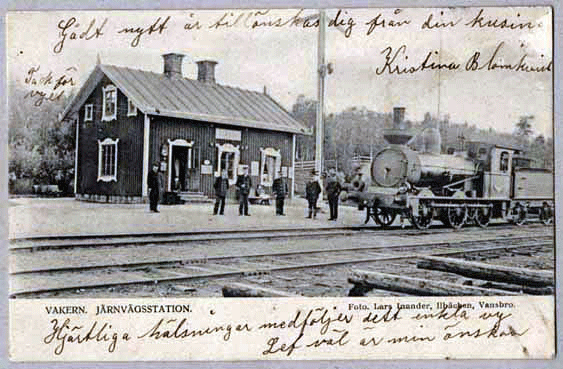 Godt nytt år tillönskas dig från din kusin
Kristina Blomkvist
Tack för
vyet
VAKERN. JÄRNVÄGSSTATION.
Foto. Lars Inander, Ilbäcken, Vansbro.
Hjärtliga hälsningar medföljer dett enkla vy
Lef väl är min önskan